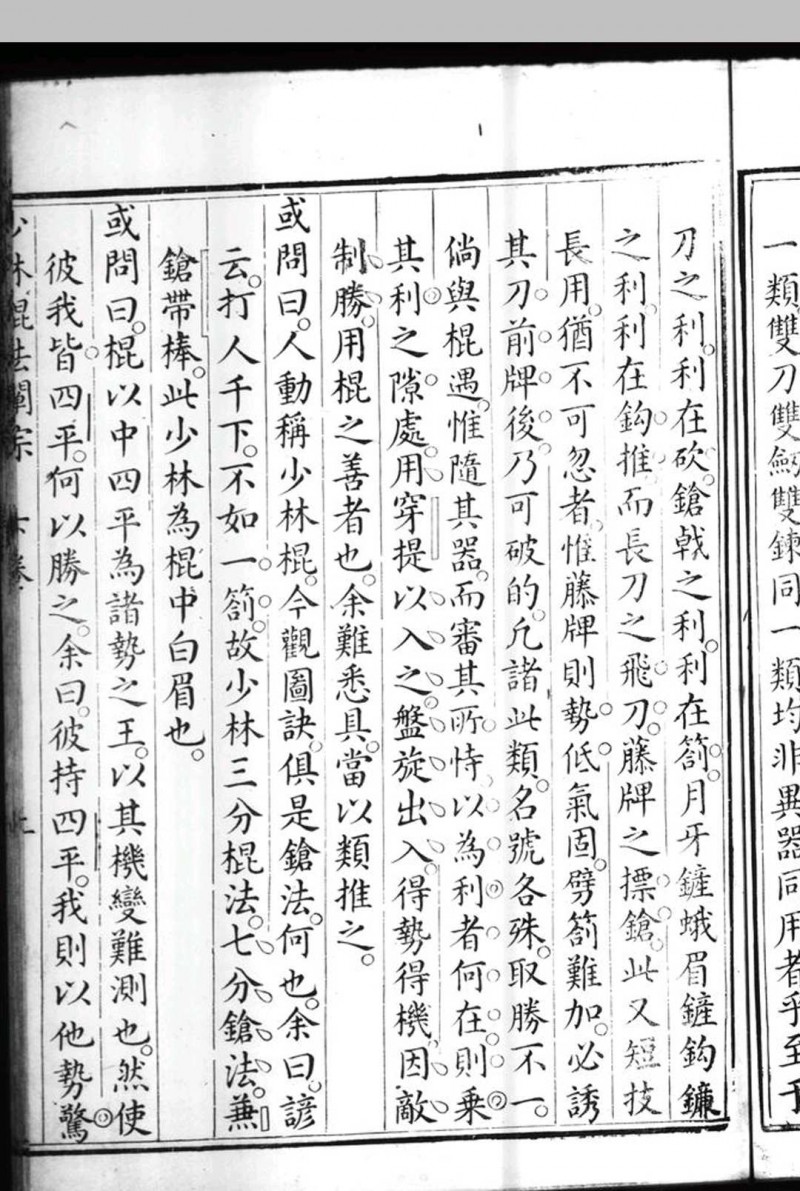 一類雙刀雙劍雙鍊同一類均非異器同用者乎至于
刀之利。利在砍。鎗戟之利。利在劄。月牙鏟蛾眉鏟鈎鐮
之利。利在鈎推。而長刀之飛刀。藤牌之摽鎗。此又短技
長用。猶不可忽者。惟藤牌則勢低氣固。劈劄難加。必誘
其刀前牌後。乃可破的。凢諸此類。名號各殊。取勝不一。
倘與棍遇。惟隨其器。而審其所恃以為利者何在。則乗
其利之隙處。用穿提以入之。盤旋出入。得勢得機。因敵
制勝。用棍之善者也。余難悉具。當以類推之。
或問曰。人動稱少林棍。今觀圖訣。俱是鎗法。何也。余曰。諺
云。打人千下。不如一劄。故少林三分棍法。七分鎗法。兼
鎗帶棒。此少林為棍中白眉也。
或問曰。棍以中四平為諸勢之王。以其機變難測也。然使
彼我皆四平。何以勝之。余曰。彼持四平。我則以他勢驚
少林棍法闡宗 下卷